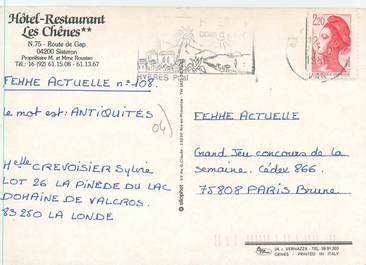 Hôtel-Restaurant
Les Chênes**
N.75 - Route de Gap
04200 Sisteron
Propriétaire M. et Mme Roustan
Tél.: 16 (92) 61.15.08 - 61.13.67
2,20
HYERES
FEMME ACTUELLE n° 108.
Le mot est: ANTIQUITÉS
04)
Melle CREVOISIER Sylvie
LOT 26 LA PINÈDE DU LAC
DOMAINE DE VALCROS.
83250 LA LONDE
FEMME ACTUELLE
Grand Jeu concours de la
semaine. Cédex 866.
75808 PARIS Brune.
eliophot
VERNAZZA - TEL.
GENES - PRINTED IN ITALY